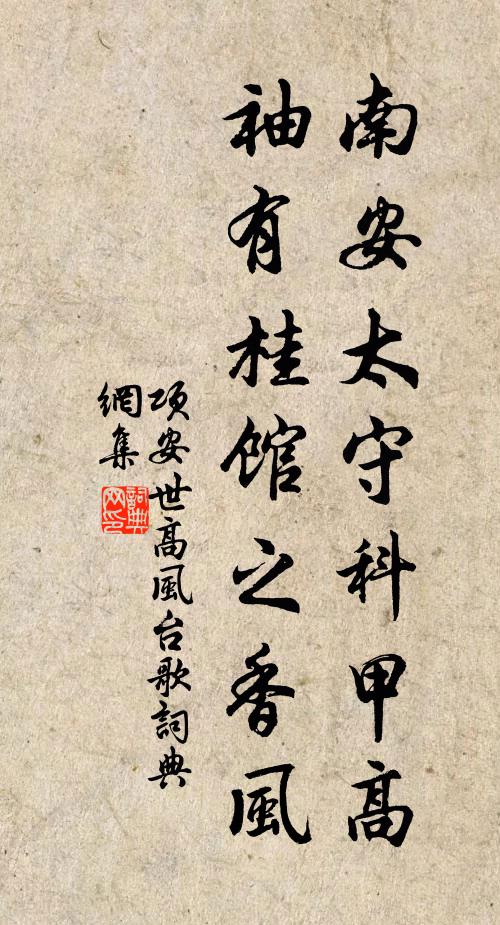 南安太守科甲高
袖有桂馆之香風
项安世高風台歌詞典
網集
詞典
网印